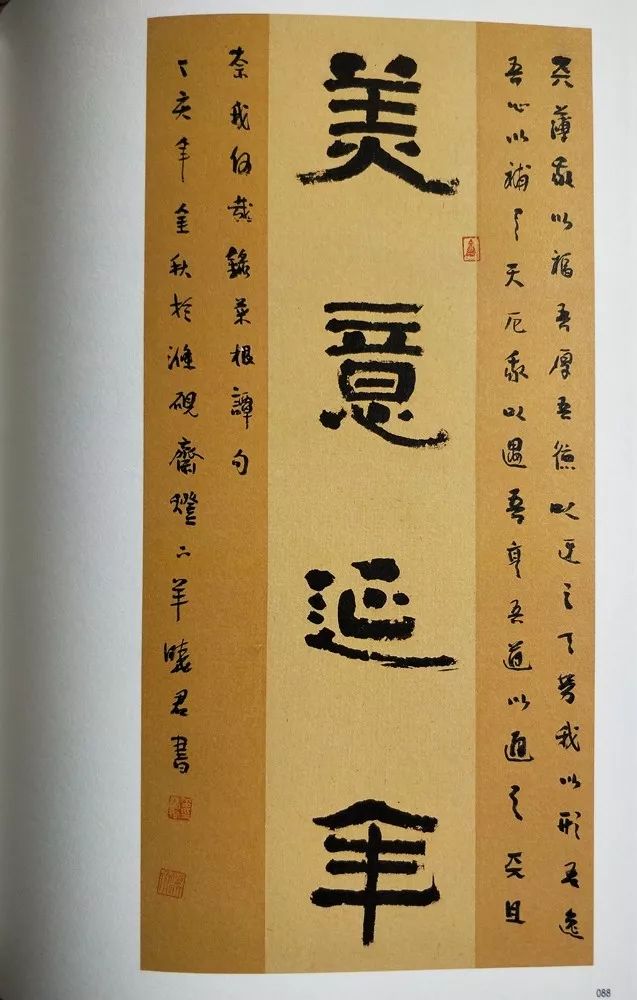 美意延年
天薄我以福吾厚吾德以迓之天勞我以形吾逸
吾心以補之天厄我以遇吾亨吾道以通之天且
奈我何哉錄菜根譚句
丁亥年金秋於硯齋燈下羊曉君書
088